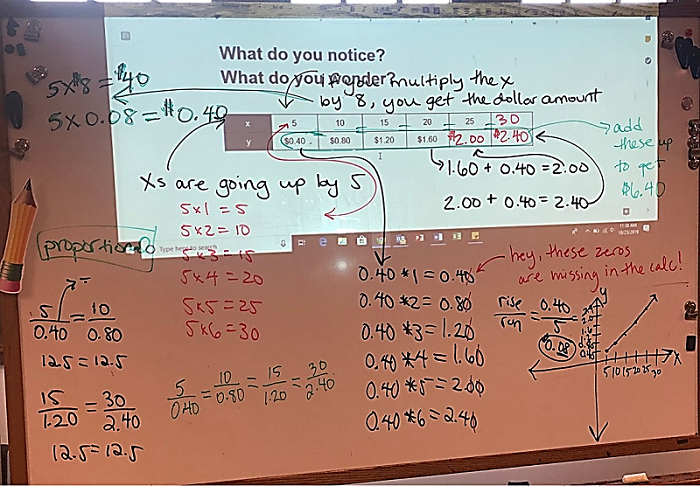 What do you notice?
What do you wonder?
If you multiply the x
by 8, you get the dollar amount
5 x $8 = $40
5 x 0.08 = $0.40
x 5 10 15 20 25 30
y $0.40 $0.80 $1.20 $1.60 $2.00 $2.40
add
these up
to get
$6.40
1.60 + 0.40 = 2.00
2.00 + 0.40 = 2.40
Xs are going up by 5
5x1 = 5
5x2 = 10
5x3 = 15
5x4 = 20
5x5 = 25
5x6 = 30
11:08 AM
10/23/2019
Type here to search
proportional
÷
5/0.40 = 10/0.80
12.5 = 12.5
15/1.20 = 30/2.40
12.5 = 12.5
5/0.40 = 10/0.80 = 15/1.20 = 30/2.40
0.40 * 1 = 0.40
0.40 * 2 = 0.80
0.40 * 3 = 1.20
0.40 * 4 = 1.60
0.40 * 5 = 2.00
0.40 * 6 = 2.40
hey, these zeros
are missing in the calc!
rise/run = 0.40/5
0.08
y
x
5 10 15 20 25 30